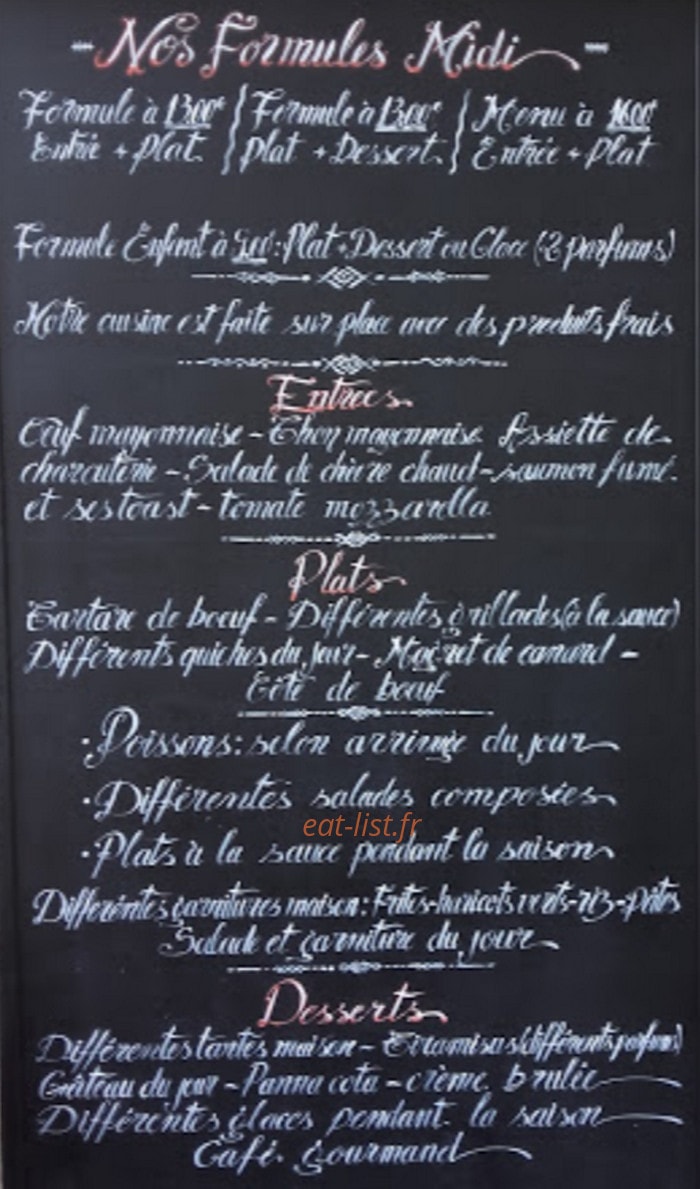 - Nos Formules Midi -
Formule à 13.00€ Formule à 13.00€ Menu à 16.00€
Entrée + Plat Plat + Dessert Entrée + Plat
Formule Enfant à : Plat + Dessert ou Glace (2 parfums)
Notre cuisine est faite sur place avec des produits frais
Entrées
Œuf mayonnaise - Thon mayonnaise Assiette de
charcuterie - Salade de chèvre chaud - saumon fumé
et ses toast - tomate mozzarella
Plats
Tartare de boeuf - Différentes grillades (à la sauce)
Différents quiches du jour - Magret de canard -
Côte de boeuf
· Poissons : selon arrivage du jour
· Différentes salades composées
eat-list.fr
· Plats à la sauce pendant la saison
Différentes garnitures maison : Frites - haricots verts - riz - pâtes
Salade et garniture du jour
Desserts
Différentes tartes maison - Tiramisus (différents parfums)
Gâteau du jour - Panna cota - crème brulée
Différentes glaces pendant la saison
Café gourmand